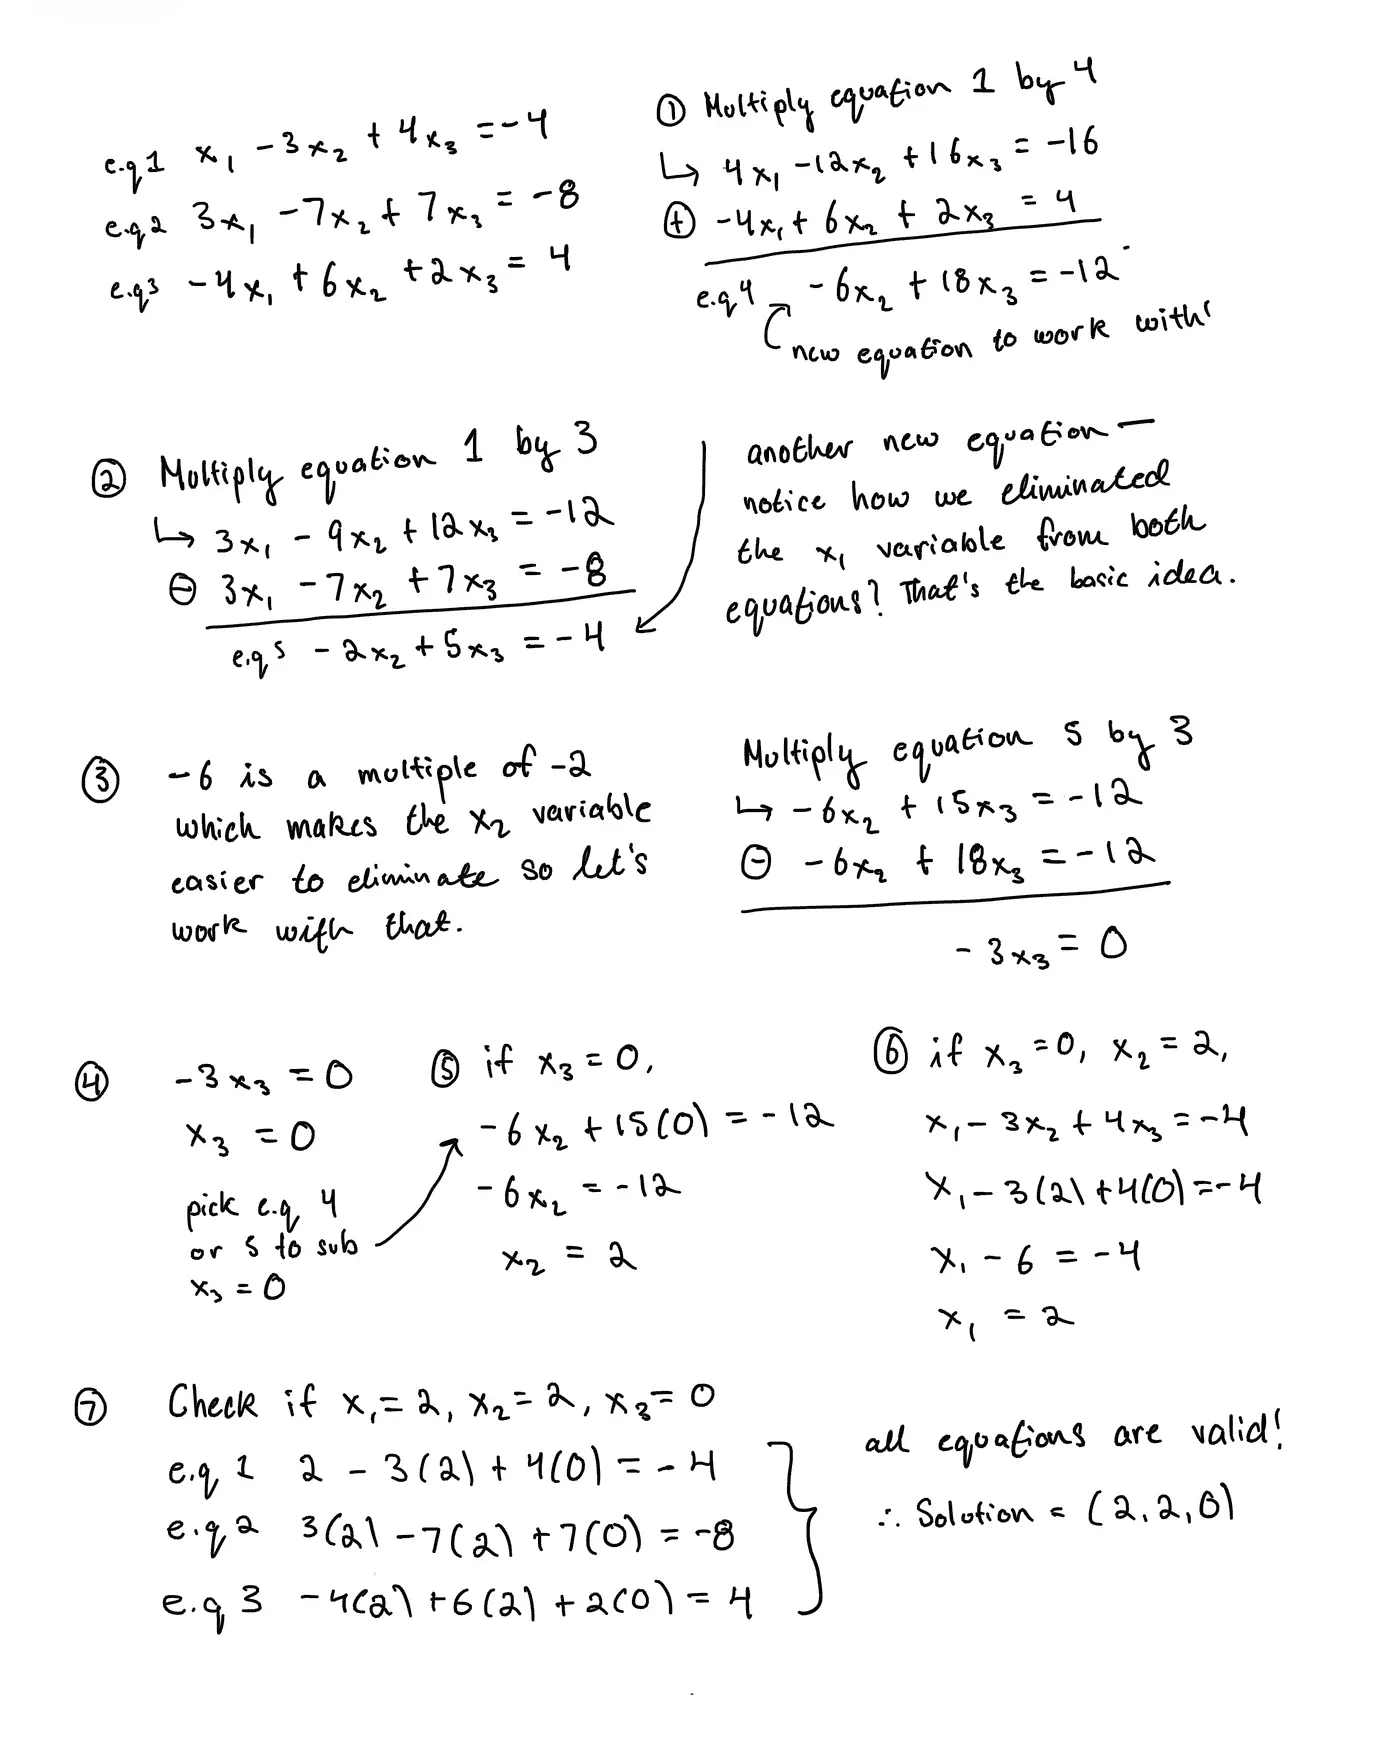 e.q 1 x₁ - 3x₂ + 4x₃ = -4
e.q 2 3x₁ - 7x₂ + 7x₃ = -8
e.q 3 -4x₁ + 6x₂ + 2x₃ = 4
① Multiply equation 1 by 4
↳ 4x₁ - 12x₂ + 16x₃ = -16
⊕ -4x₁ + 6x₂ + 2x₃ = 4
e.q 4 -6x₂ + 18x₃ = -12
new equation to work with!
② Multiply equation 1 by 3
↳ 3x₁ - 9x₂ + 12x₃ = -12
⊖ 3x₁ - 7x₂ + 7x₃ = -8
e.q 5 -2x₂ + 5x₃ = -4
another new equation —
notice how we eliminated
the x₁ variable from both
equations? That's the basic idea.
③ -6 is a multiple of -2
which makes the x₂ variable
easier to eliminate so let's
work with that.
Multiply equation 5 by 3
↳ -6x₂ + 15x₃ = -12
⊖ -6x₂ + 18x₃ = -12
-3x₃ = 0
④ -3x₃ = 0
x₃ = 0
pick e.q 4
or 5 to sub
x₃ = 0
⑤ if x₃ = 0,
-6x₂ + 15(0) = -12
-6x₂ = -12
x₂ = 2
⑥ if x₃ = 0, x₂ = 2,
x₁ - 3x₂ + 4x₃ = -4
x₁ - 3(2) + 4(0) = -4
x₁ - 6 = -4
x₁ = 2
⑦ Check if x₁ = 2, x₂ = 2, x₃ = 0
e.q 1 2 - 3(2) + 4(0) = -4
e.q 2 3(2) - 7(2) + 7(0) = -8
e.q 3 -4(2) + 6(2) + 2(0) = 4
all equations are valid!
∴ Solution = (2, 2, 0)